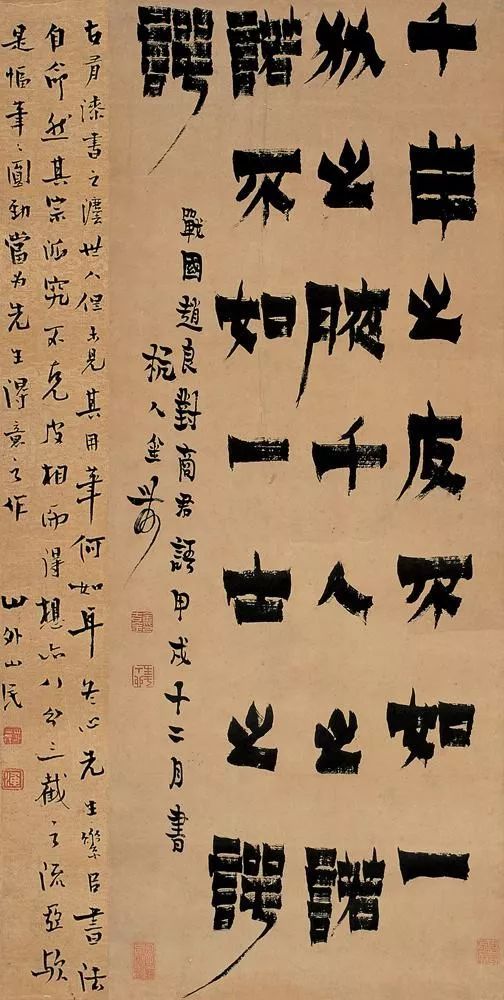 千羊之皮不如一
狐之腋千人之諾
諾不如一士之諤
諤
戰國趙良對商君語甲戌十二月書
杭人金農
古有漆書之灋世人俱未見其用筆何如耳冬心先生書法
自命然其宗派究不克皮相而得想亦八分三截之流亞歟
是幅筆〻圓勁當为先生得意之作
山外山民